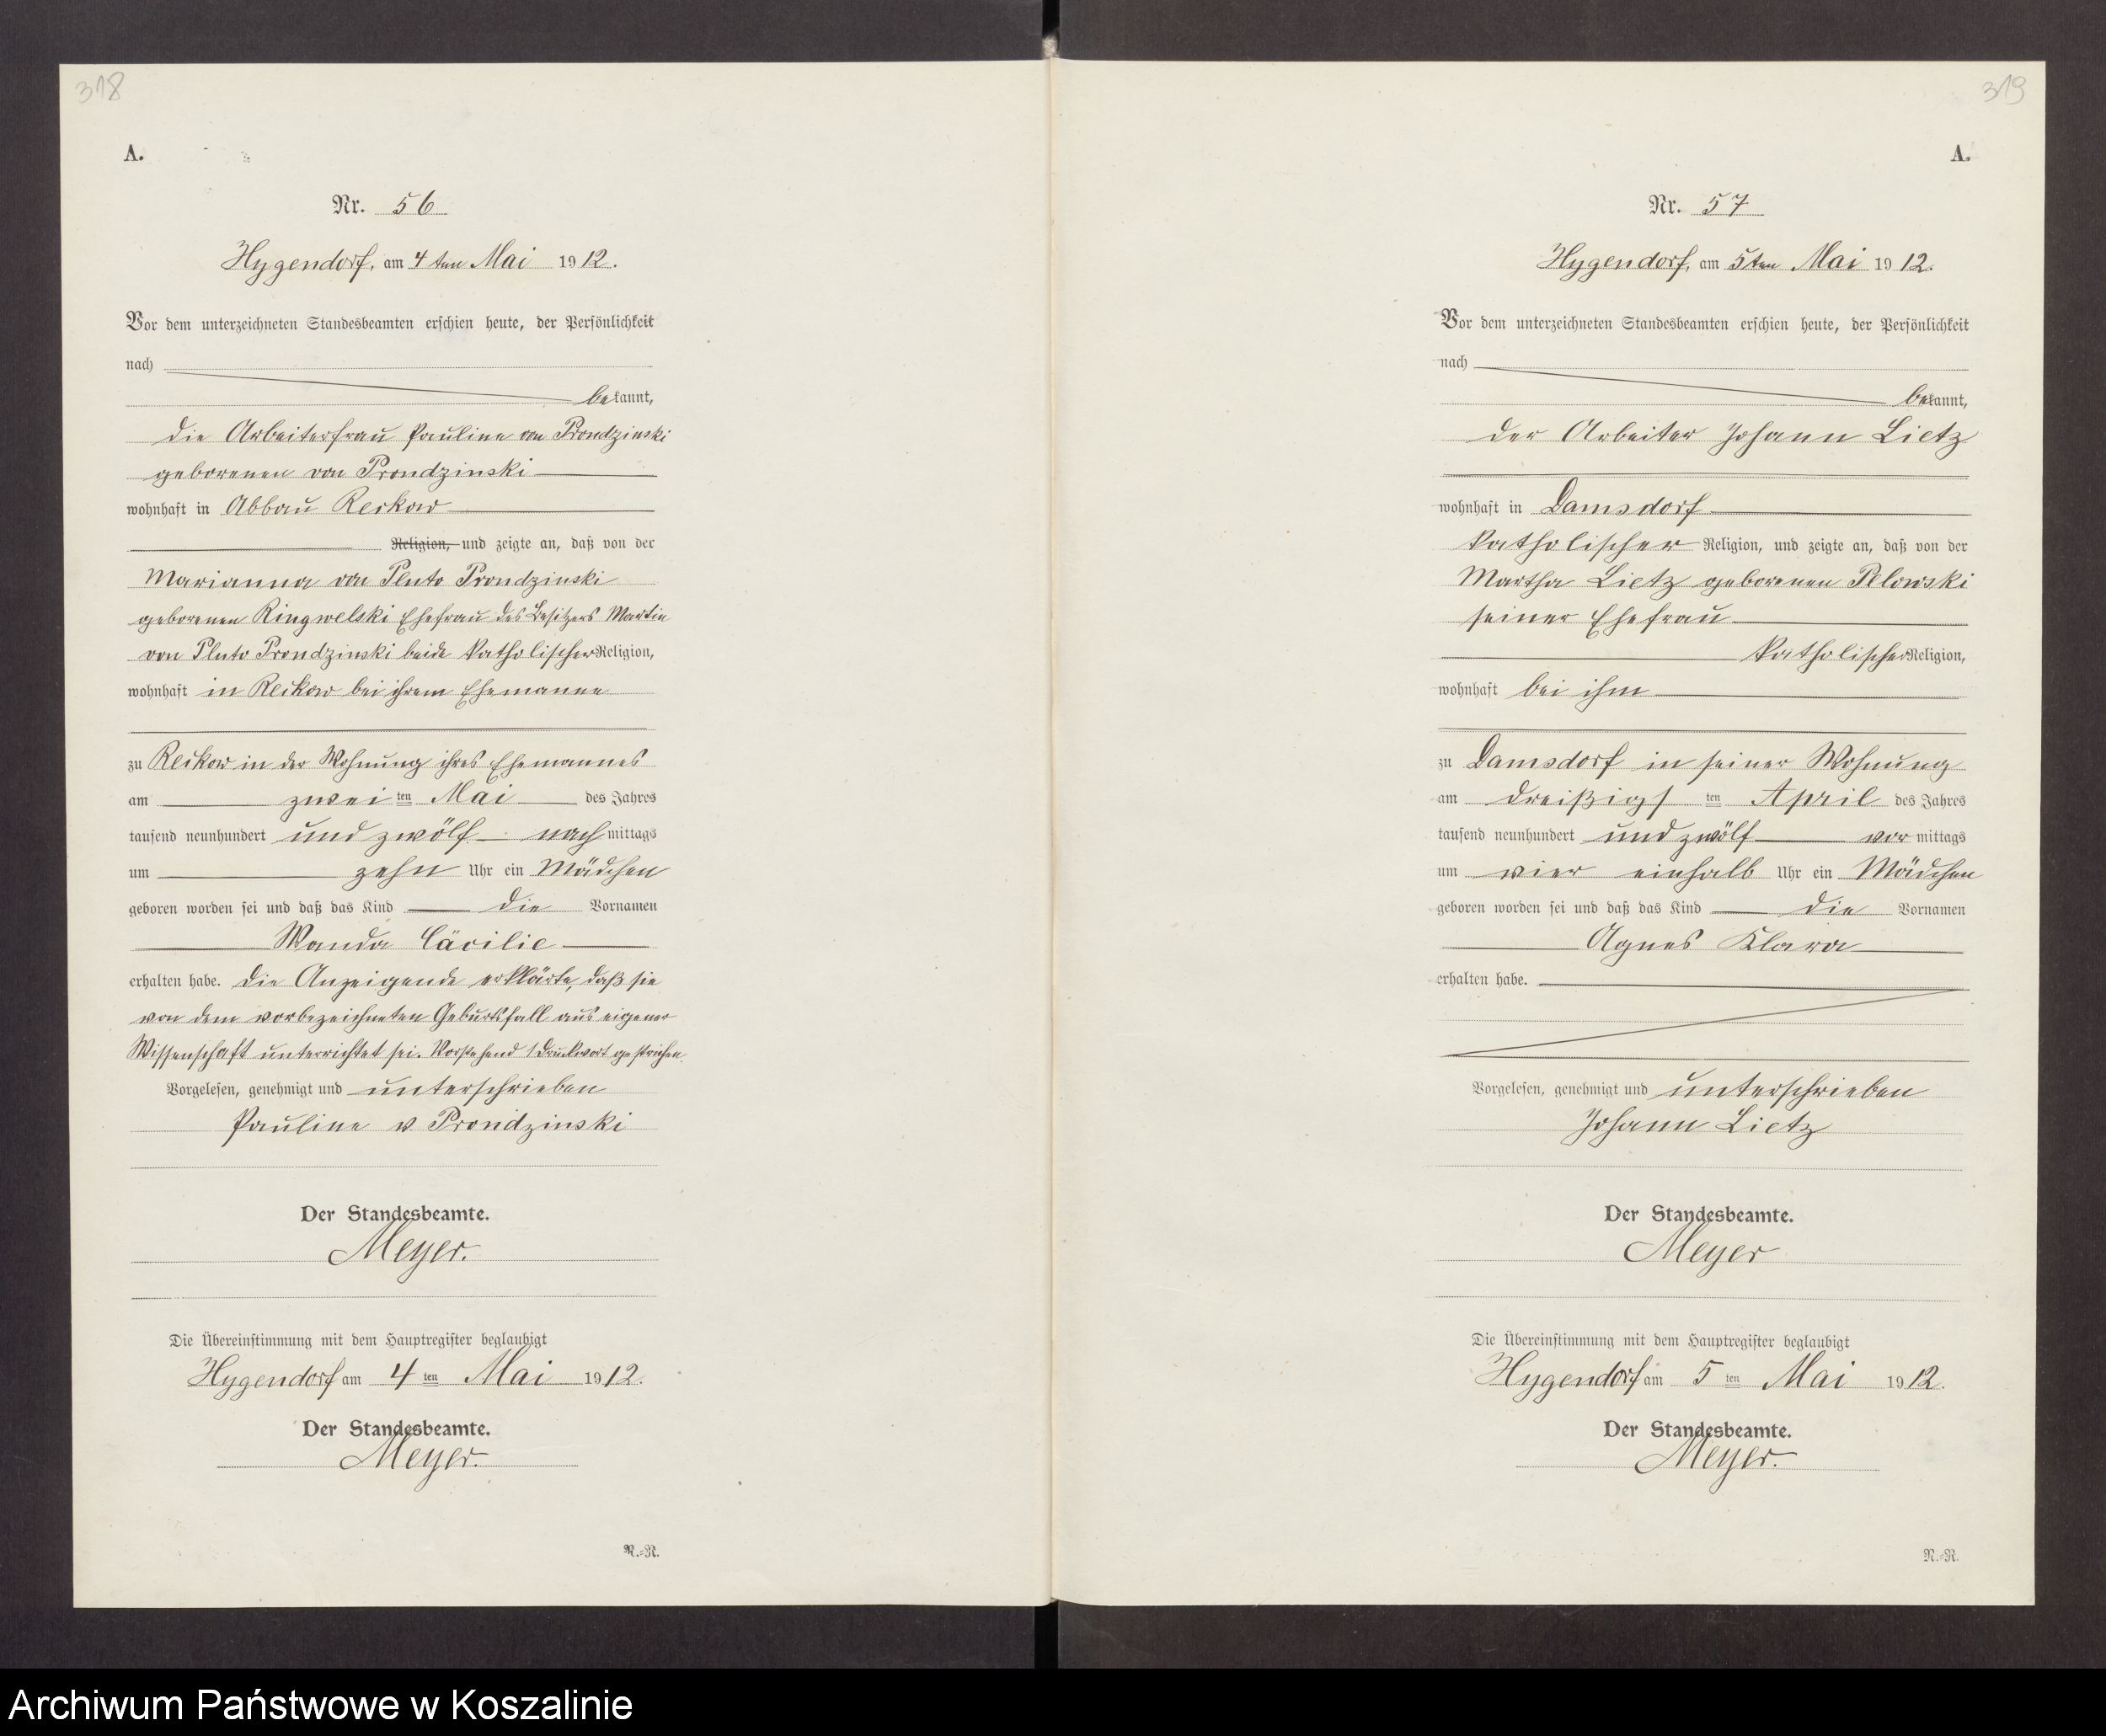 318
A.
Nr. 56
Hygendorf, am 4ten Mai 1912.
Vor dem unterzeichneten Standesbeamten erschien heute, der Persönlichkeit
nach
bekannt,
die Arbeiterfrau Pauline von Prondzinski
geborenen von Prondzinski
wohnhaft in Abbau Reckow
Religion, und zeigte an, daß von der
Marianna von Pluto Prondzinski
geborenen Ringwelski Ehefrau des Besitzers Martin
von Pluto Prondzinski beide katholischer Religion,
wohnhaft in Reckow bei ihrem Ehemanne
zu Reckow in der Wohnung ihres Ehemannes
am zweiten Mai des Jahres
tausend neunhundert und zwölf nachmittags
um zehn Uhr ein Mädchen
geboren worden sei und daß das Kind die Vornamen
Wanda Cäcilie
erhalten habe. Die Anzeigende erklärte, daß sie
von dem vorbezeichneten Geburtsfall aus eigener
Wissenschaft unterrichtet sei. Vorstehend 1 Druckwort gestrichen.
Vorgelesen, genehmigt und unterschrieben
Pauline v Prondzinski
Der Standesbeamte.
Meyer.
Die Übereinstimmung mit dem Hauptregister beglaubigt
Hygendorf am 4ten Mai 1912.
Der Standesbeamte.
Meyer.
R.-R.
319
A.
Nr. 57
Hygendorf, am 5ten Mai 1912.
Vor dem unterzeichneten Standesbeamten erschien heute, der Persönlichkeit
nach
bekannt,
der Arbeiter Johann Lietz
wohnhaft in Damsdorf
katholischer Religion, und zeigte an, daß von der
Martha Lietz geborenen Pelowski
seiner Ehefrau
katholischer Religion,
wohnhaft bei ihm
zu Damsdorf in seiner Wohnung
am dreißigsten April des Jahres
tausend neunhundert und zwölf vormittags
um vier einhalb Uhr ein Mädchen
geboren worden sei und daß das Kind die Vornamen
Agnes Klara
erhalten habe.
Vorgelesen, genehmigt und unterschrieben
Johann Lietz
Der Standesbeamte.
Meyer
Die Übereinstimmung mit dem Hauptregister beglaubigt
Hygendorf am 5ten Mai 1912.
Der Standesbeamte.
Meyer.
R.-R.
Archiwum Państwowe w Koszalinie